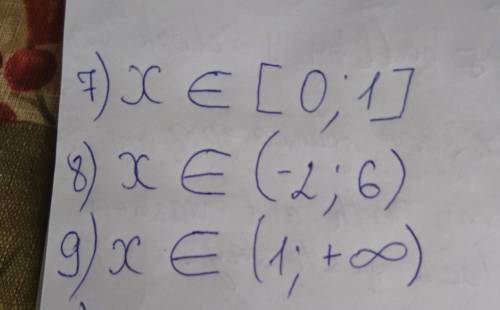 7) x ∈ [0; 1]
8) x ∈ (-2; 6)
9) x ∈ (1; +∞)